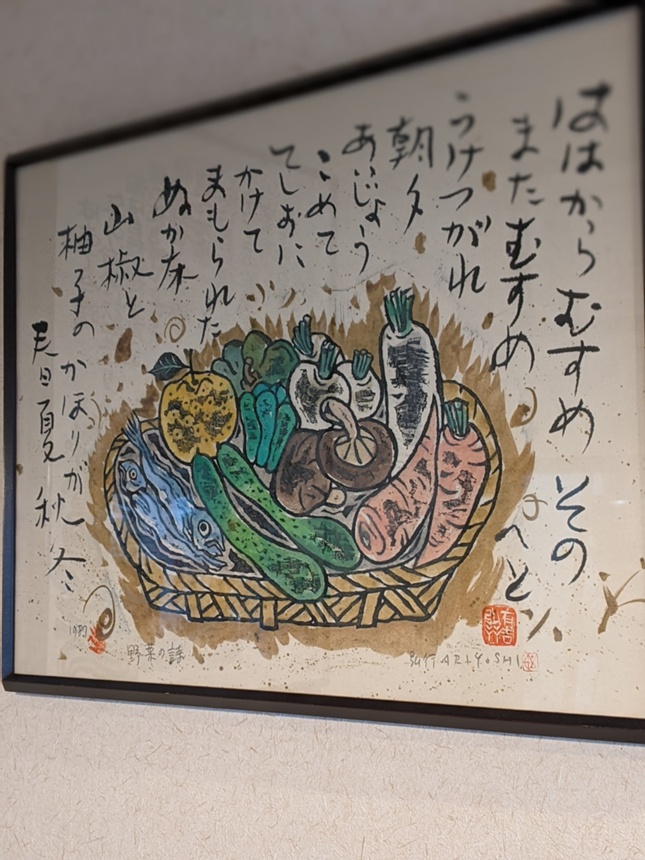 ははから むすめ その
また むすめ へと
うけつがれ
朝夕
あいじょう
こめて
てしおに
かけて
まもられた
ぬか床
山椒と
柚子の かほりが
春 夏 秋 冬
野菜の詩
ARIYOSHI